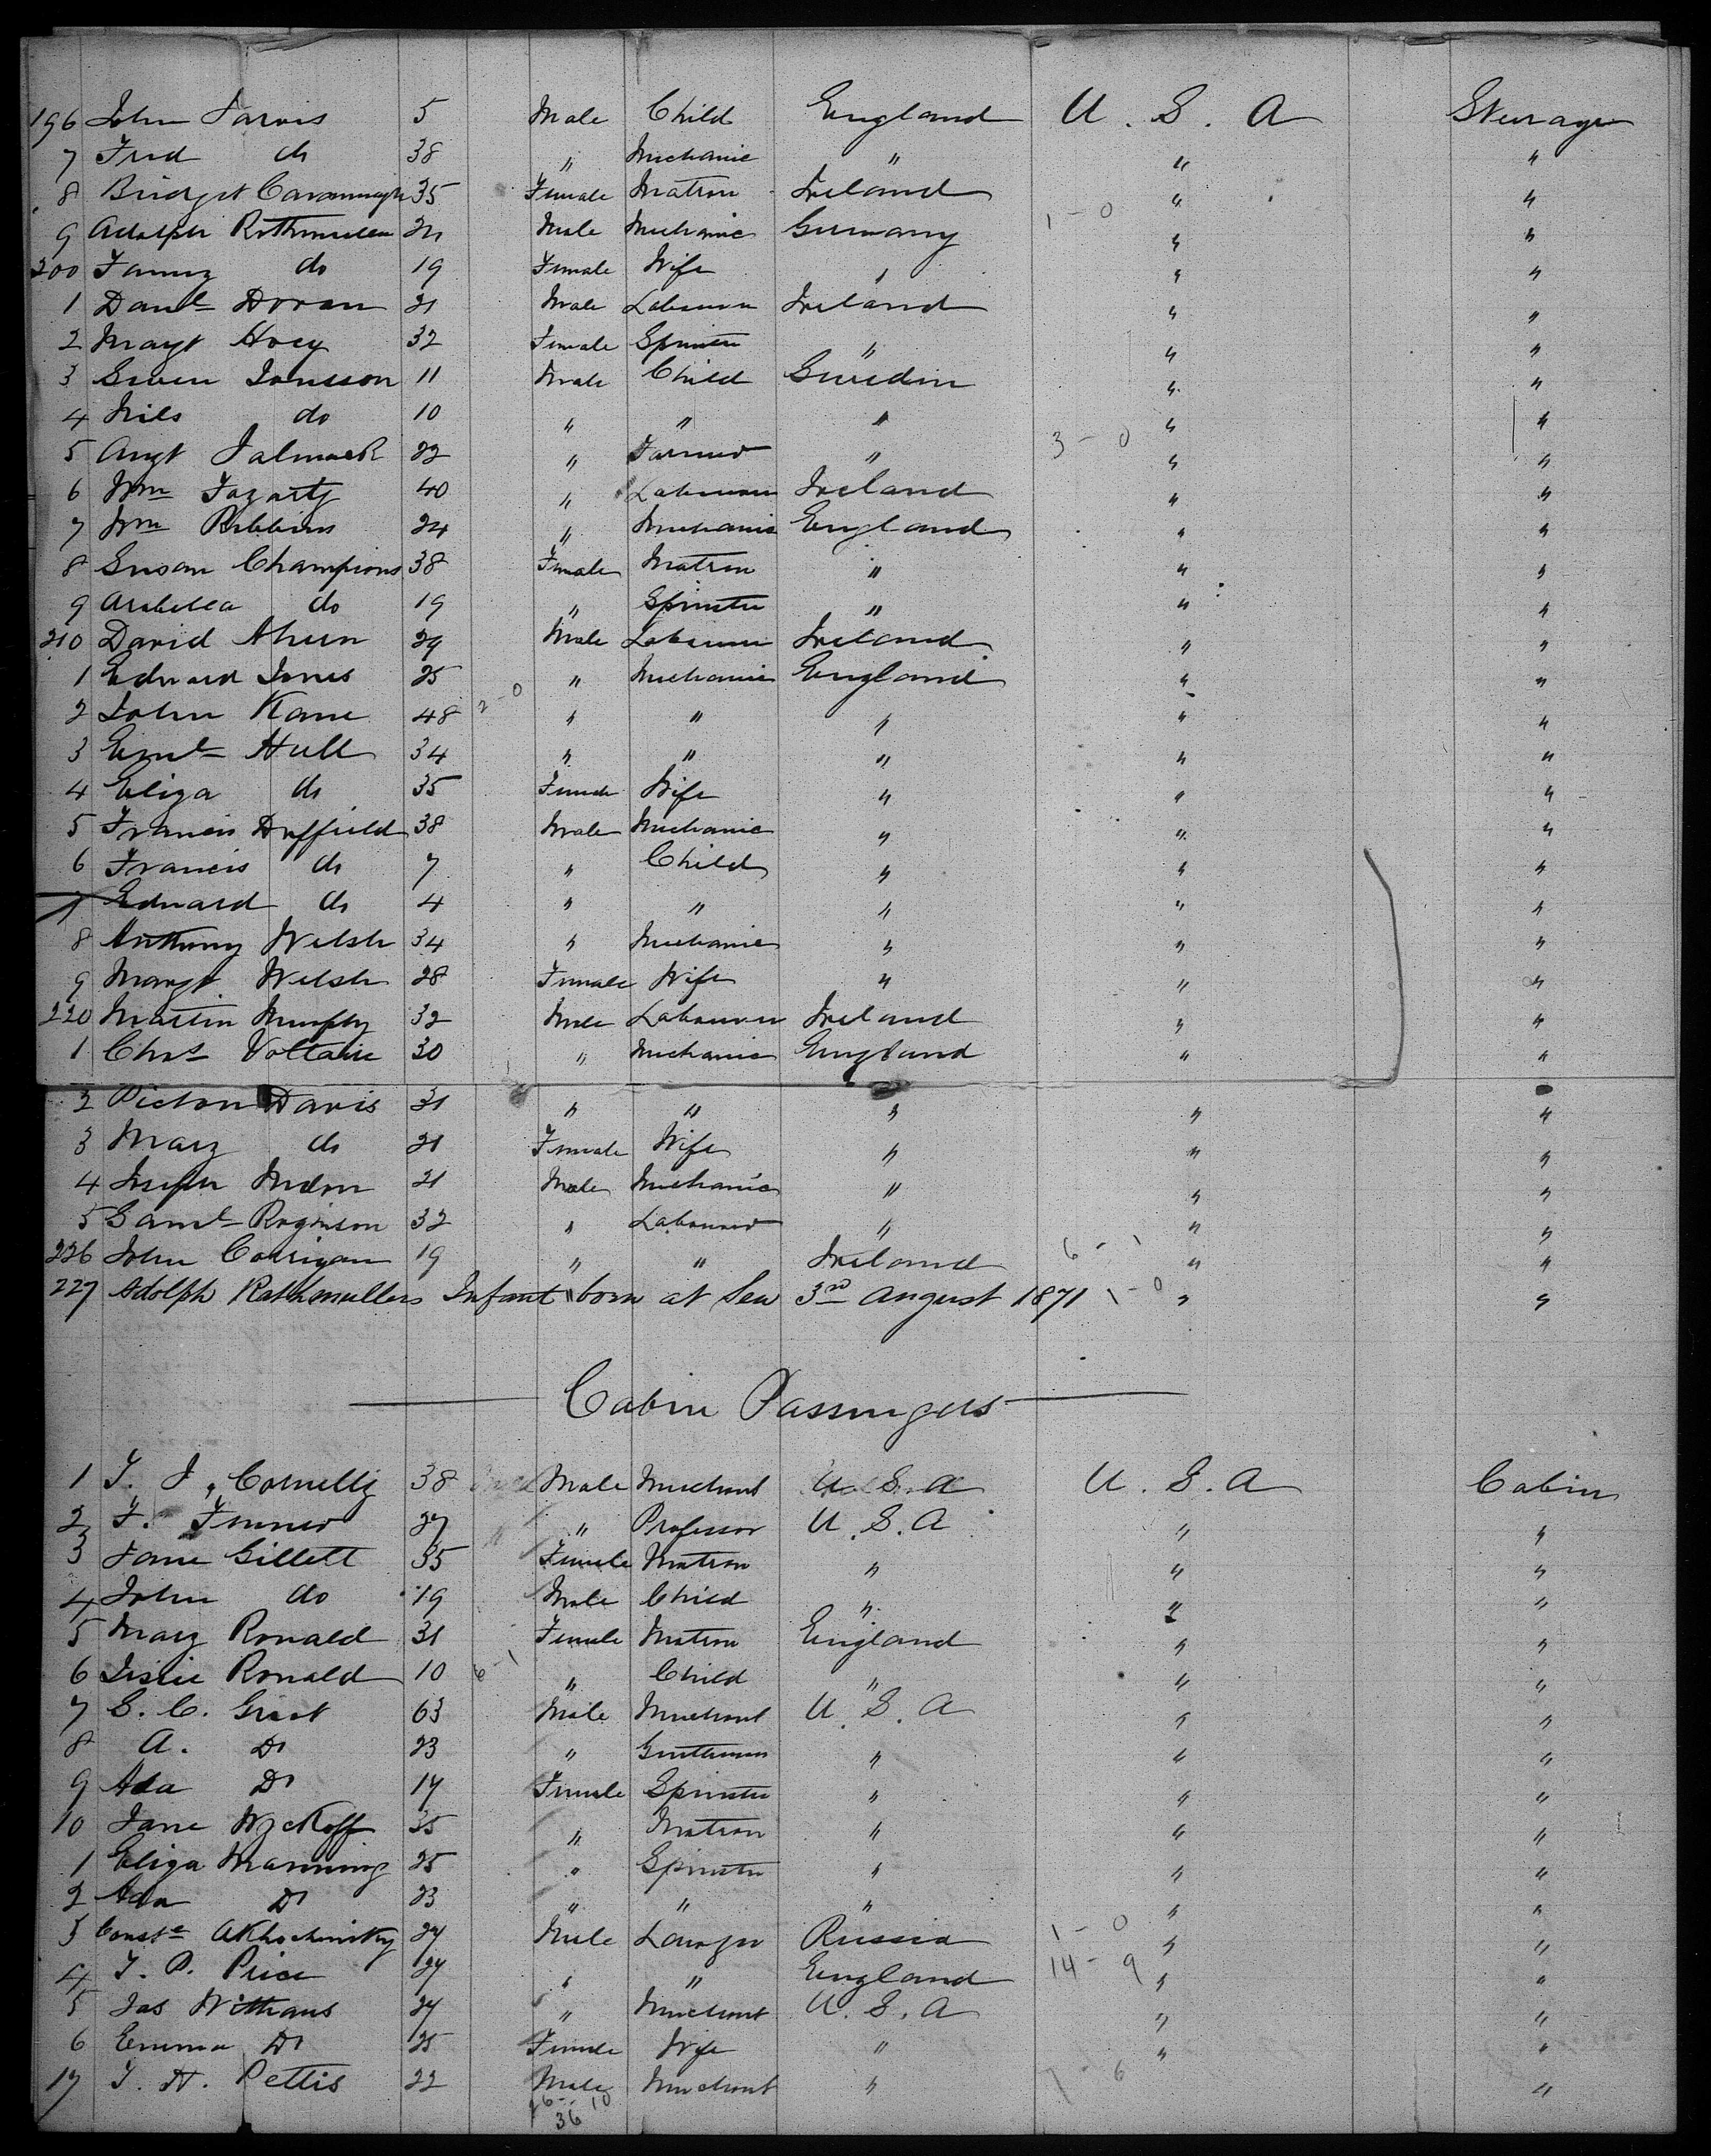 196 John Jarvis 5 Male Child England U. S. A Steerage
7 Fred do 38 " Mechanic " " "
8 Bridget Cavannagh 35 Female Matron Ireland " "
9 Adolph Rothmuller 24 Male Mechanic Germany 1-0 " "
200 Fanny do 19 Female Wife " " "
1 Danl Doran 21 Male Labourer Ireland " "
2 Margt Hoey 32 Female Spinster " " "
3 Swen Jonsson 11 Male Child Sweden " "
4 Nils do 10 " " " " "
5 Augt 22 " Farmer " 3-0 " "
6 Wm Fogarty 40 " Labourer Ireland " "
7 Wm Ribbins 24 " Mechanic England " "
8 Susan Champions 38 Female Matron " " "
9 Arabella do 19 " Spinster " " "
210 David Ahern 29 Male Labourer Ireland " "
1 Edward Jones 25 " Mechanic England " "
2 John Kane 48 2-0 " " " " "
3 Hull 34 " " " " "
4 Eliza do 35 Female Wife " " "
5 Francis Duffield 38 Male Mechanic " " "
6 Francis do 7 " Child " " "
7 Edward do 4 " " " " "
8 Anthony Welsh 34 " Mechanic " " "
9 Margt Welsh 28 Female Wife " " "
220 Martin Murphy 32 Male Labourer Ireland " "
1 Chas Voltaire 30 " Mechanic England " "
2 Picton Davis 31 " " " " "
3 Mary do 21 Female Wife " " "
4 Joseph 21 Male Mechanic " " "
5 Saml Roginson 32 " Labourer " " "
226 John Corrigan 19 " " Ireland 6-1 " "
227 Adolph Rathmullers Infant born at Sea 3rd August 1871 1-0 " "
Cabin Passengers
1 T. J. Cornelly 38 Male Merchant U. S. A U. S. A Cabin
2 F. 27 " Professor U. S. A " "
3 Jane Gillett 35 Female Matron " " "
4 John do 19 Male Child " " "
5 Mary Ronald 31 Female Matron England " "
6 Jessie Ronald 10 6-1 " Child " " "
7 S. C. 63 Male Merchant U. S. A " "
8 A. Do 23 " Gentleman " " "
9 Ada Do 17 Female Spinster " " "
10 Jane Wyckoff 35 " Matron " " "
1 Eliza Manning 25 " Spinster " " "
2 Ada Do 23 " " " " "
3 27 Male Lawyer Russia 1-0 " "
4 T. P. Price 27 " " England 14-9 " "
5 Jas Witthaus 27 " Merchant U. S. A " "
6 Emma Do 25 Female Wife " " "
17 T. H. Pettis 22 Male Merchant " 1-6 " "
26-10
36